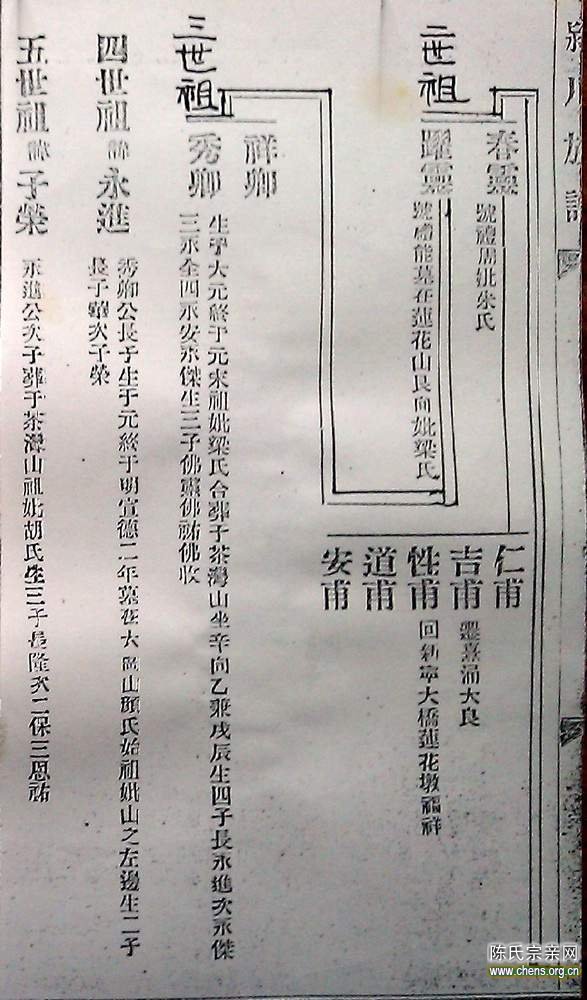 潁川族譜
二世祖
春靈
號禮周妣朱氏
躍靈
號禮能墓在蓮花山艮向妣梁氏
仁甫
吉甫
遷喜涌大良
性甫
回新寧大橋蓮花墩福祥
道甫
安甫
三世祖
祥卿
秀卿
生于大元終于元末祖妣梁氏合葬于茶灣山坐辛向乙兼戌辰生四子長永進次永傑
三永全四永安永傑生三子佛靈佛祐佛收
四世祖諱永進
秀卿公長子生于元終于明宣德二年墓在大 山顏氏始祖妣山之左邊生二子
長子華次子榮
五世祖諱子榮
永進公次子葬于茶灣山祖妣胡氏生三子長隆次二保三恩祐
陈氏宗亲网
www.chens.org.cn